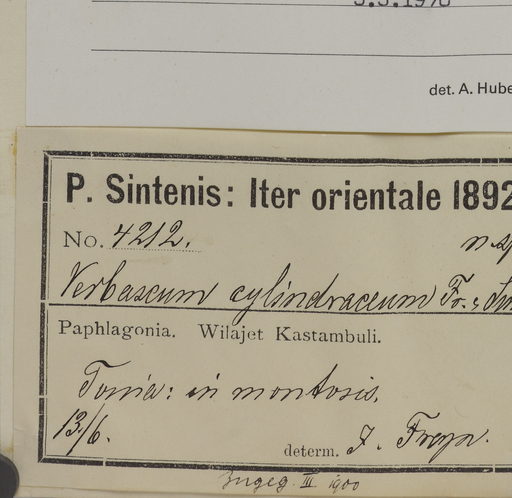 det. A. Hube
P. Sintenis: Iter orientale 1892
No. 4212. n. sp
Verbascum cylindraceum Fr.
Paphlagonia. Wilajet Kastambuli.
in montosis.
13/6.
determ. J. Freyn.
III 1900